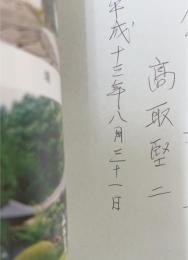 高取堅二
平成十三年八月三十一日